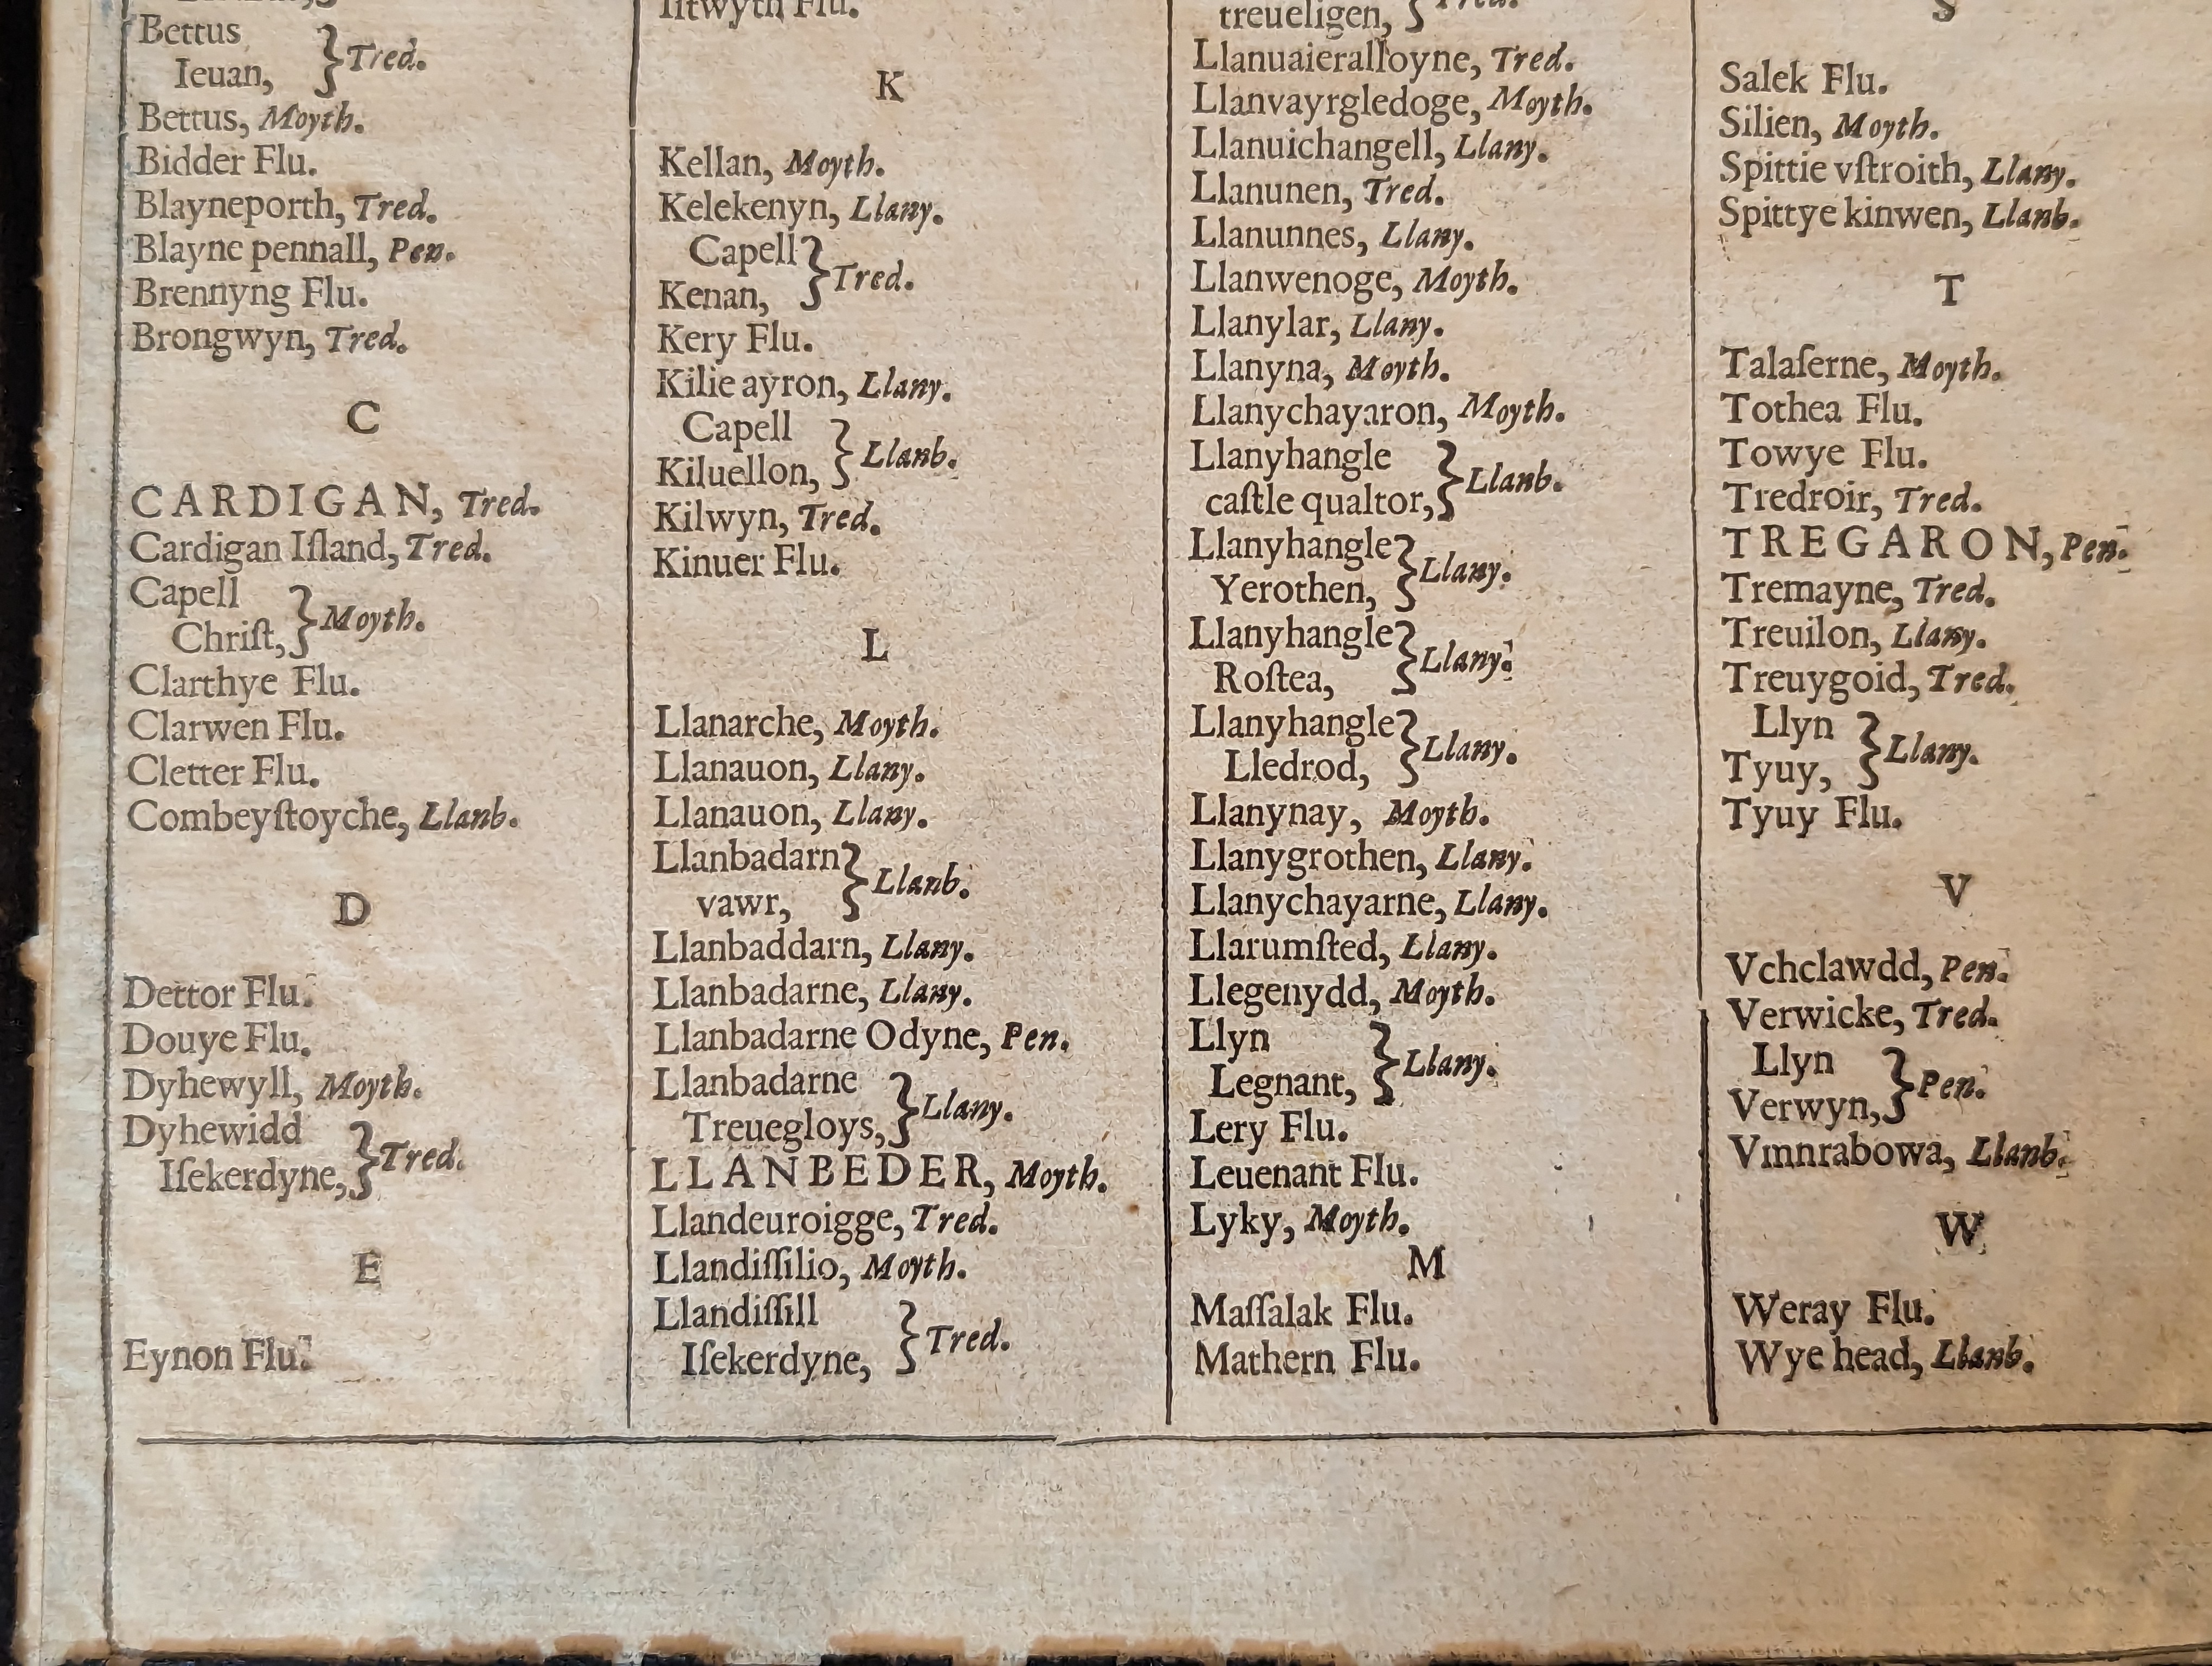 Bettus
Ieuan, } Tred.
Bettus, Moyth.
Bidder Flu.
Blayneporth, Tred.
Blayne pennall, Pen.
Brennyng Flu.
Brongwyn, Tred.
C
CARDIGAN, Tred.
Cardigan Iſland, Tred.
Capell
Chriſt, } Moyth.
Clarthye Flu.
Clarwen Flu.
Cletter Flu.
Combeyſtoyche, Llanb.
D
Dettor Flu.
Douye Flu.
Dyhewyll, Moyth.
Dyhewidd
Iſekerdyne, } Tred.
E
Eynon Flu.
K
Kellan, Moyth.
Kelekenyn, Llany.
Capell
Kenan, } Tred.
Kery Flu.
Kilie ayron, Llany.
Capell
Kiluellon, } Llanb.
Kilwyn, Tred.
Kinuer Flu.
L
Llanarche, Moyth.
Llanauon, Llany.
Llanauon, Llany.
Llanbadarn
vawr, } Llanb.
Llanbaddarn, Llany.
Llanbadarne, Llany.
Llanbadarne Odyne, Pen.
Llanbadarne
Treuegloys, } Llany.
LLANBEDER, Moyth.
Llandeuroigge, Tred.
Llandiſſilio, Moyth.
Llandiſſill
Iſekerdyne, } Tred.
treueligen,
Llanuaieralloyne, Tred.
Llanvayrgledoge, Moyth.
Llanuichangell, Llany.
Llanunen, Tred.
Llanunnes, Llany.
Llanwenoge, Moyth.
Llanylar, Llany.
Llanyna, Moyth.
Llanychayaron, Moyth.
Llanyhangle
caſtle qualtor, } Llanb.
Llanyhangle
Yerothen, } Llany.
Llanyhangle
Roſtea, } Llany.
Llanyhangle
Lledrod, } Llany.
Llanynay, Moyth.
Llanygrothen, Llany.
Llanychayarne, Llany.
Llarumſted, Llany.
Llegenydd, Moyth.
Llyn
Legnant, } Llany.
Lery Flu.
Leuenant Flu.
Lyky, Moyth.
M
Maſſalak Flu.
Mathern Flu.
S
Salek Flu.
Silien, Moyth.
Spittie vſtroith, Llany.
Spittye kinwen, Llanb.
T
Talaſerne, Moyth.
Tothea Flu.
Towye Flu.
Tredroir, Tred.
TREGARON, Pen.
Tremayne, Tred.
Treuilon, Llany.
Treuygoid, Tred.
Llyn
Tyuy, } Llany.
Tyuy Flu.
V
Vchclawdd, Pen.
Verwicke, Tred.
Llyn
Verwyn, } Pen.
Vmnrabowa, Llanb.
W
Weray Flu.
Wye head, Llanb.